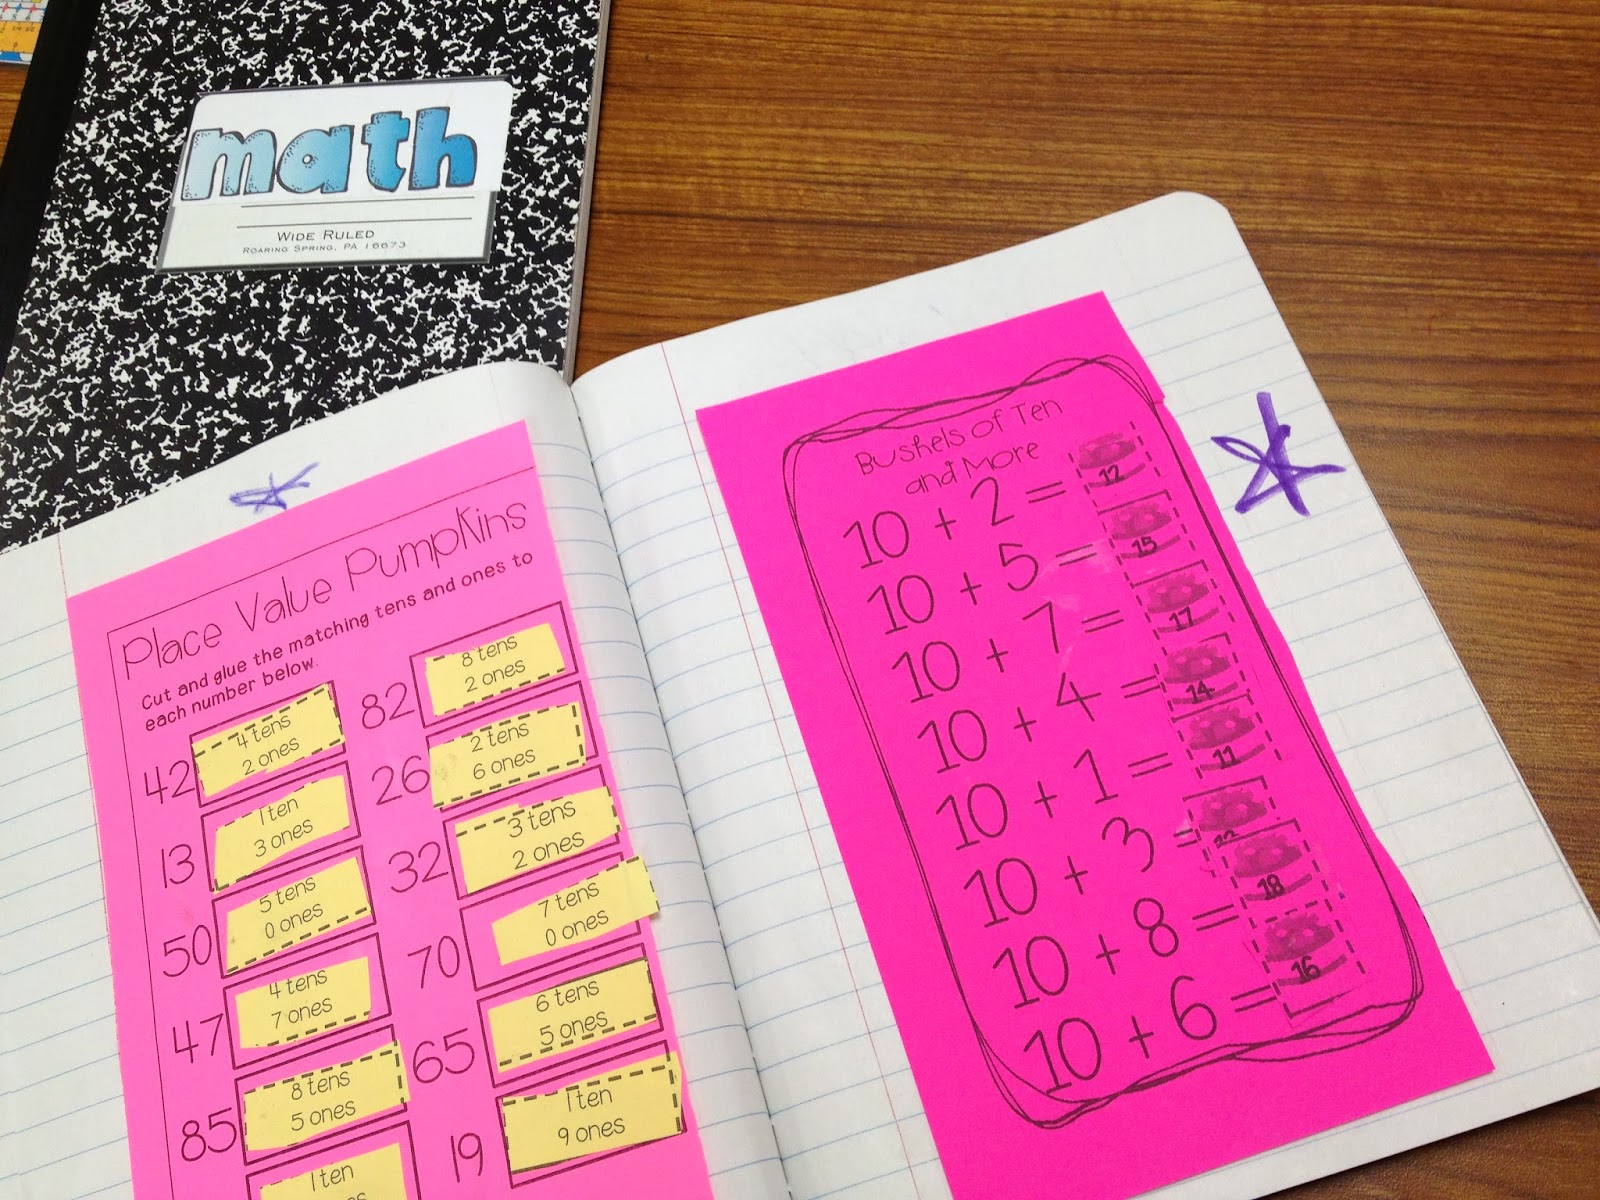 math
WIDE RULED
ROARING SPRING, PA 16673
Place Value Pumpkins
Cut and glue the matching tens and ones to
each number below.
42
4 tens
2 ones
13
1 ten
3 ones
50
5 tens
0 ones
47
4 tens
7 ones
85
8 tens
5 ones
1 ten
82
8 tens
2 ones
26
2 tens
6 ones
32
3 tens
2 ones
70
7 tens
0 ones
65
6 tens
5 ones
19
1 ten
9 ones
Bushels of Ten
and More
10 + 2 = 12
10 + 5 = 15
10 + 7 = 17
10 + 4 = 14
10 + 1 = 11
10 + 3 =
10 + 8 = 18
10 + 6 = 16